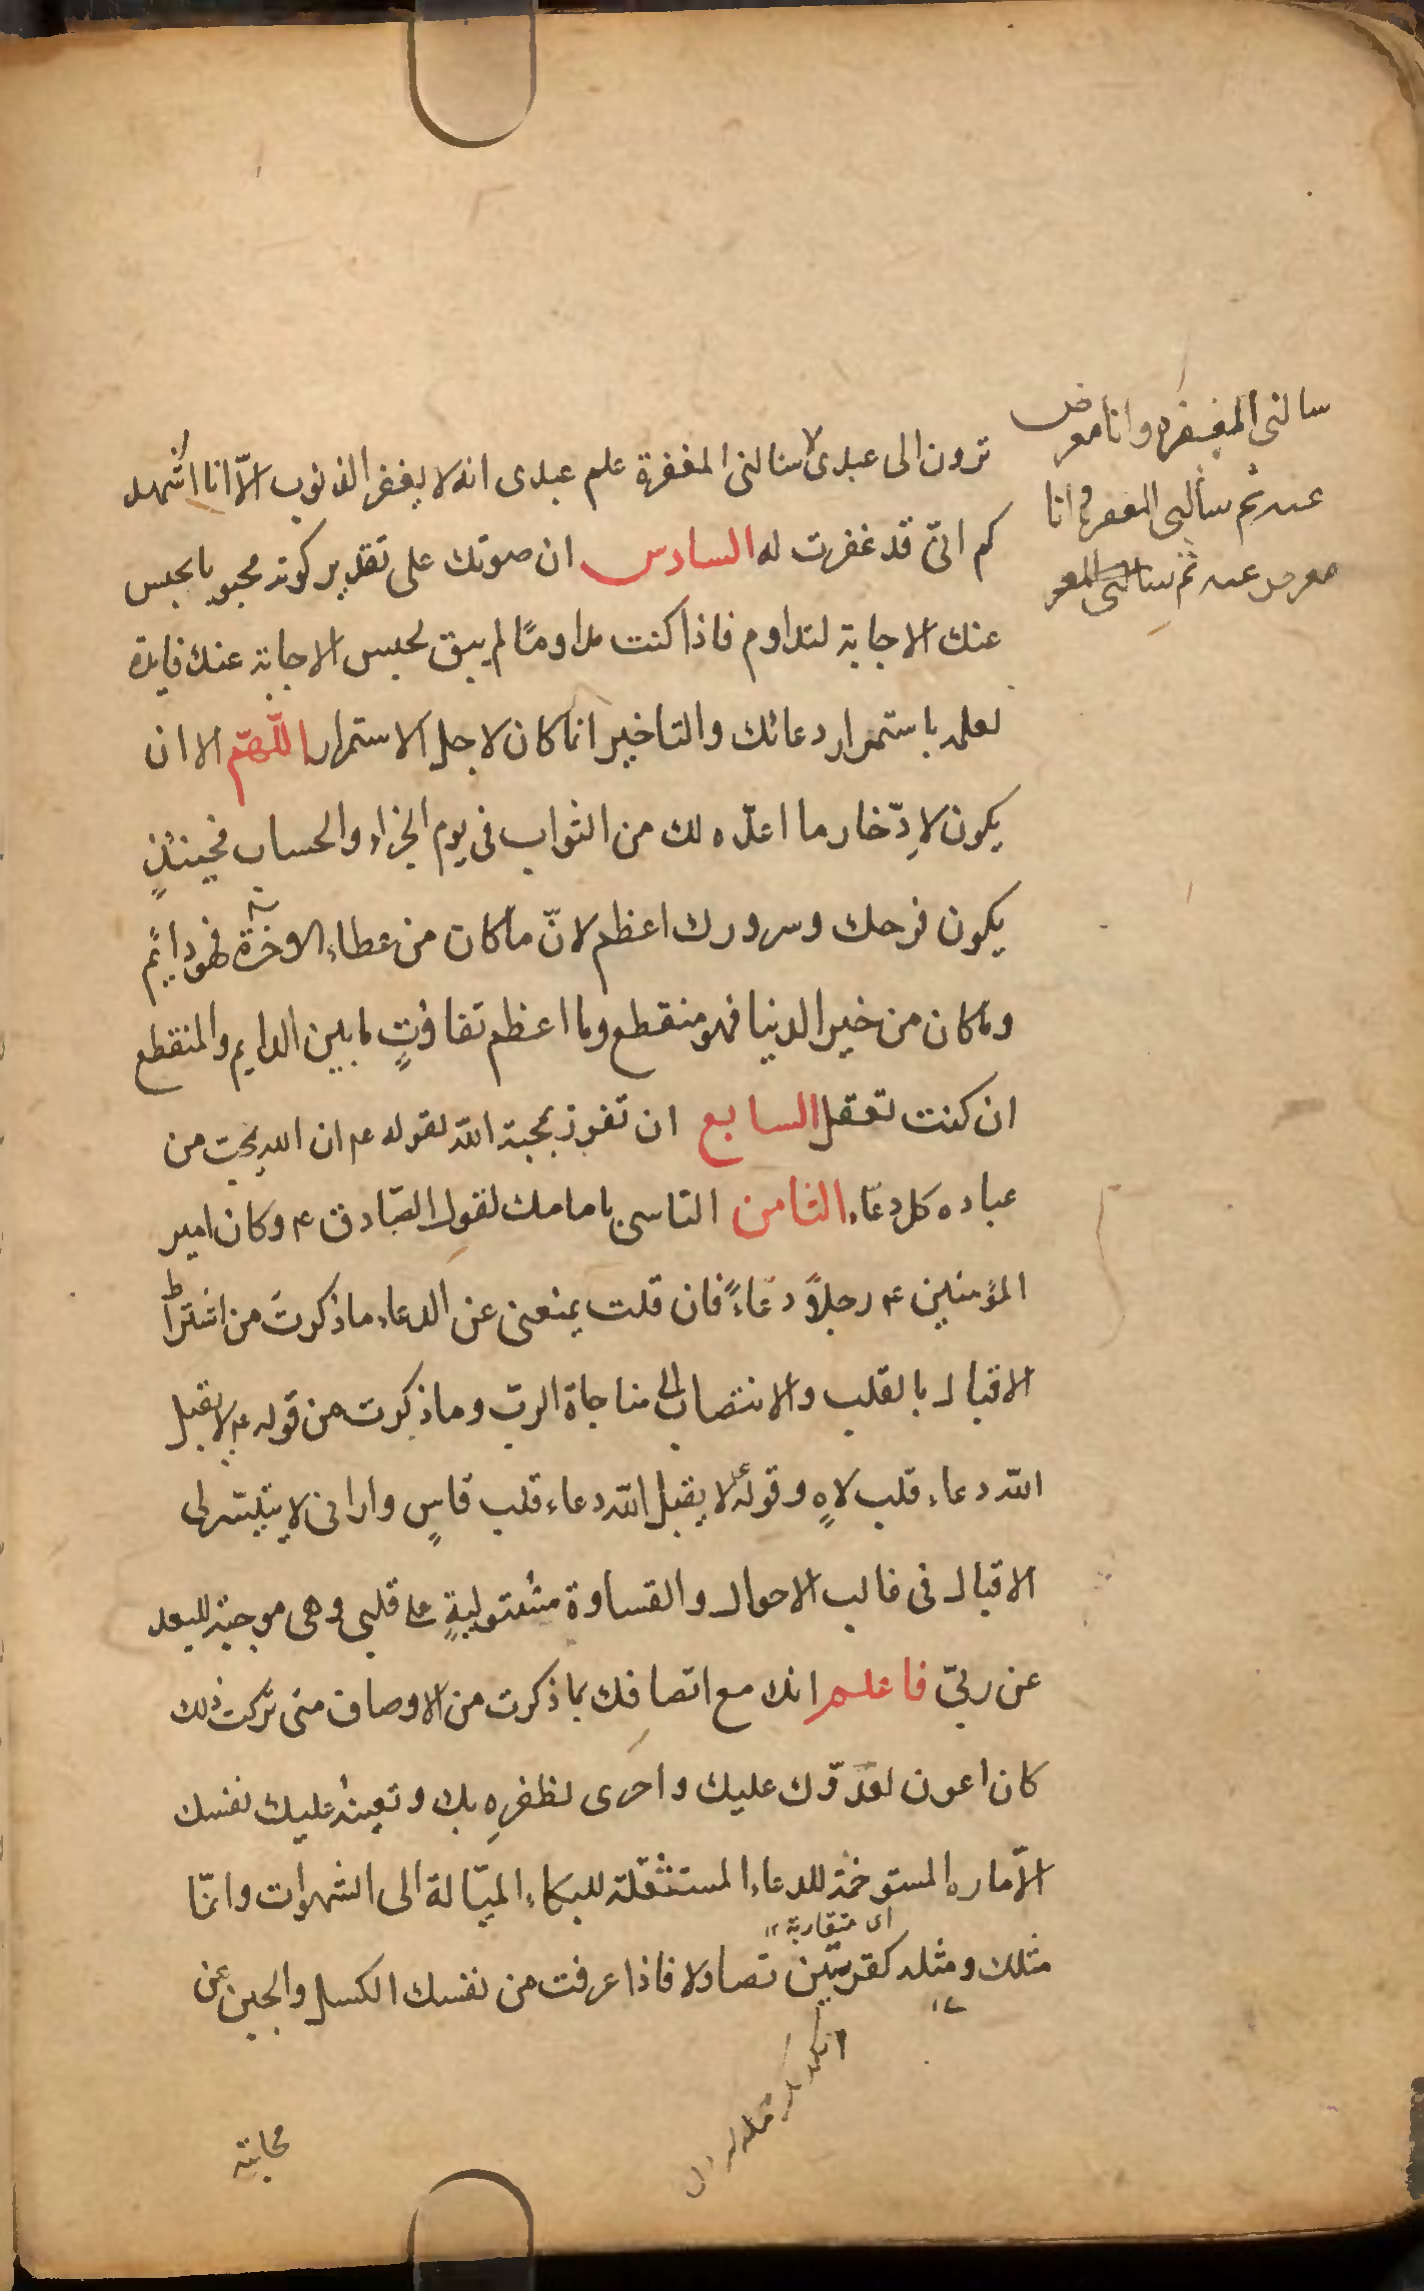 ترون الى عبدى سالنى المغفرة علم عبدى انه لا يغفر الذنوب الّا انا اشهد
كم انّى قد غفرت له السادس ان صوتك على تقدير كونه محبوبا يحبس
عنك الاجابة لتداوم فاذا كنت مداومًا لم يبق لحبس الاجابة عنك فايدة
لعلمه باستمرار دعائك والتاخير انما كان لاجل الاستمرار اللّهمّ الا ان
يكون لاِدّخار ما اعدّه لك من الثواب فى يوم الجزاء والحساب فحينئذٍ
يكون فرحك وسرورك اعظم لانّ ما كان من عطاء الاخرة فهو دايم
وما كان من خير الدنيا فهو منقطع وما اعظم تفاوتٍ ما بين الدايم والمنقطع
ان كنت تعقل السابع ان تفوز بمحبة اللّه لقوله ع ان الله يحبّ من
عباده كل دعّاء الثامن التاسى بامامك لقول الصّادق ع وكان امير
المؤمنين ع رجلاً دعّاءً فان قلت يمنعنى عن الدعاء ما ذكرتَ من اشتراط
الاقبال بالقلب والانتصاب الى مناجاة الربّ وما ذكرت من قوله ع لا يقبل
اللّه دعاء قلب لاهٍ وقوله ع لا يقبل اللّه دعاء قلب قاسٍ وارانى لا يتيسّر لى
الاقبال فى غالب الاحوال والقساوة مستوليةٍ على قلبى وهى موجبة للبعد
عن ربىّ فاعلم انك مع اتصافك بما ذكرت من الاوصاف متى تركت ذلك
كان اعون لعدوّك عليك واحرى لظفرهِ بك وتعينه عليك نفسك
الأمّاره المستوخمة للدعاء المستثقلة للبكاء الميّالة الى الشهوات وانمّا
اى متقاربة
مثلك ومثله كقرنيّن تصاولا فاذا عرفت من نفسك الكسل والجبن عن
محابته
سالنى المغفره وانا معرض
عنه ثم سألنى المغفره وانا
معرض عنه ثم سالنى المغفر